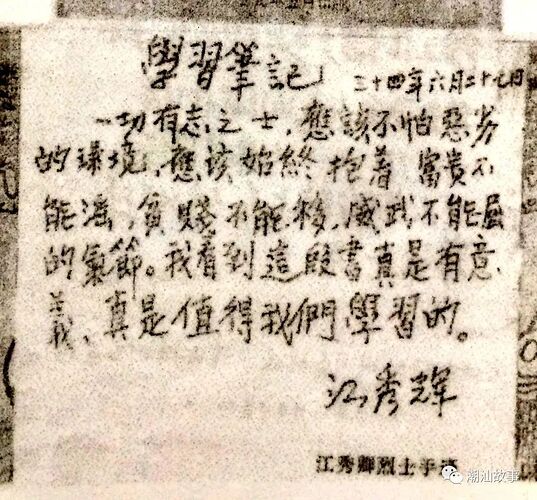 學習筆記
三十四年六月二十七日
一切有志之士，應該不怕惡劣
的環境，應该始終抱着 富贵不
能淫，貧賤不能移，威武不能屈
的氣節。我看到這段書真是有意
義，真是值得我們學習的。
江秀輝
江秀卿烈士手迹
潮汕故事